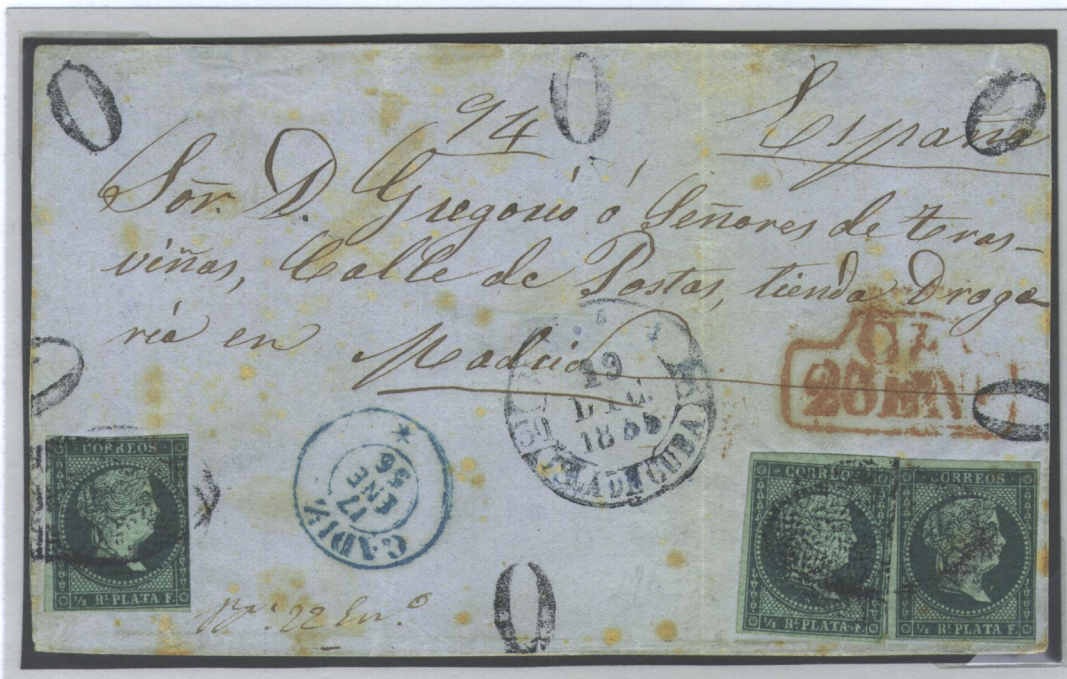 0 0 0
94 España
Sõr. D. Gregorio ó Señores de tras-
viñas, Calle de Postas, tienda Droge-
ría en
Madrid
19
DIC.
1855
ISLA DE CUBA
20 EN
0 0
CORREOS
½ Rl. PLATA F.
CADIZ
17
ENE
56
CORREOS
½ Rl. PLATA F.
CORREOS
½ Rl. PLATA F.
22 En.º
0